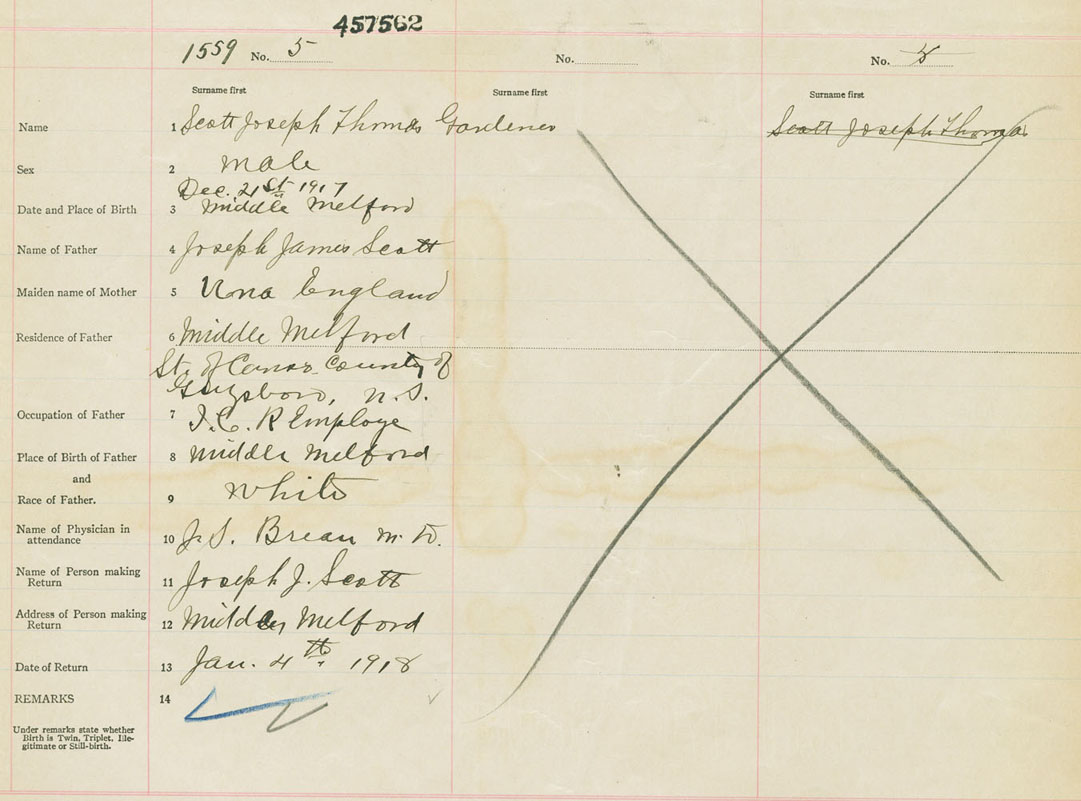 457562
1559 No. 5 No. No. 5
Surname first Surname first Surname first
Name 1 Scott Joseph Thomas Gardener Scott Joseph Thomas
Sex 2 male
Dec. 21st 1917
Date and Place of Birth 3 Middle Melford
Name of Father 4 Joseph James Scott
Maiden name of Mother 5 Una England
Residence of Father 6 Middle Melford
County of
Guysboro, N.S.
Occupation of Father 7 I.C.R Employe
Place of Birth of Father 8 Middle Melford
and
Race of Father. 9 White
Name of Physician in
attendance 10 J.S. M.D.
Name of Person making
Return 11 Joseph J. Scott
Address of Person making
Return 12 Melford
Date of Return 13 Jan. 4th 1918
REMARKS 14
Under remarks state whether
Birth is Twin, Triplet, Ille-
gitimate or Still-birth.